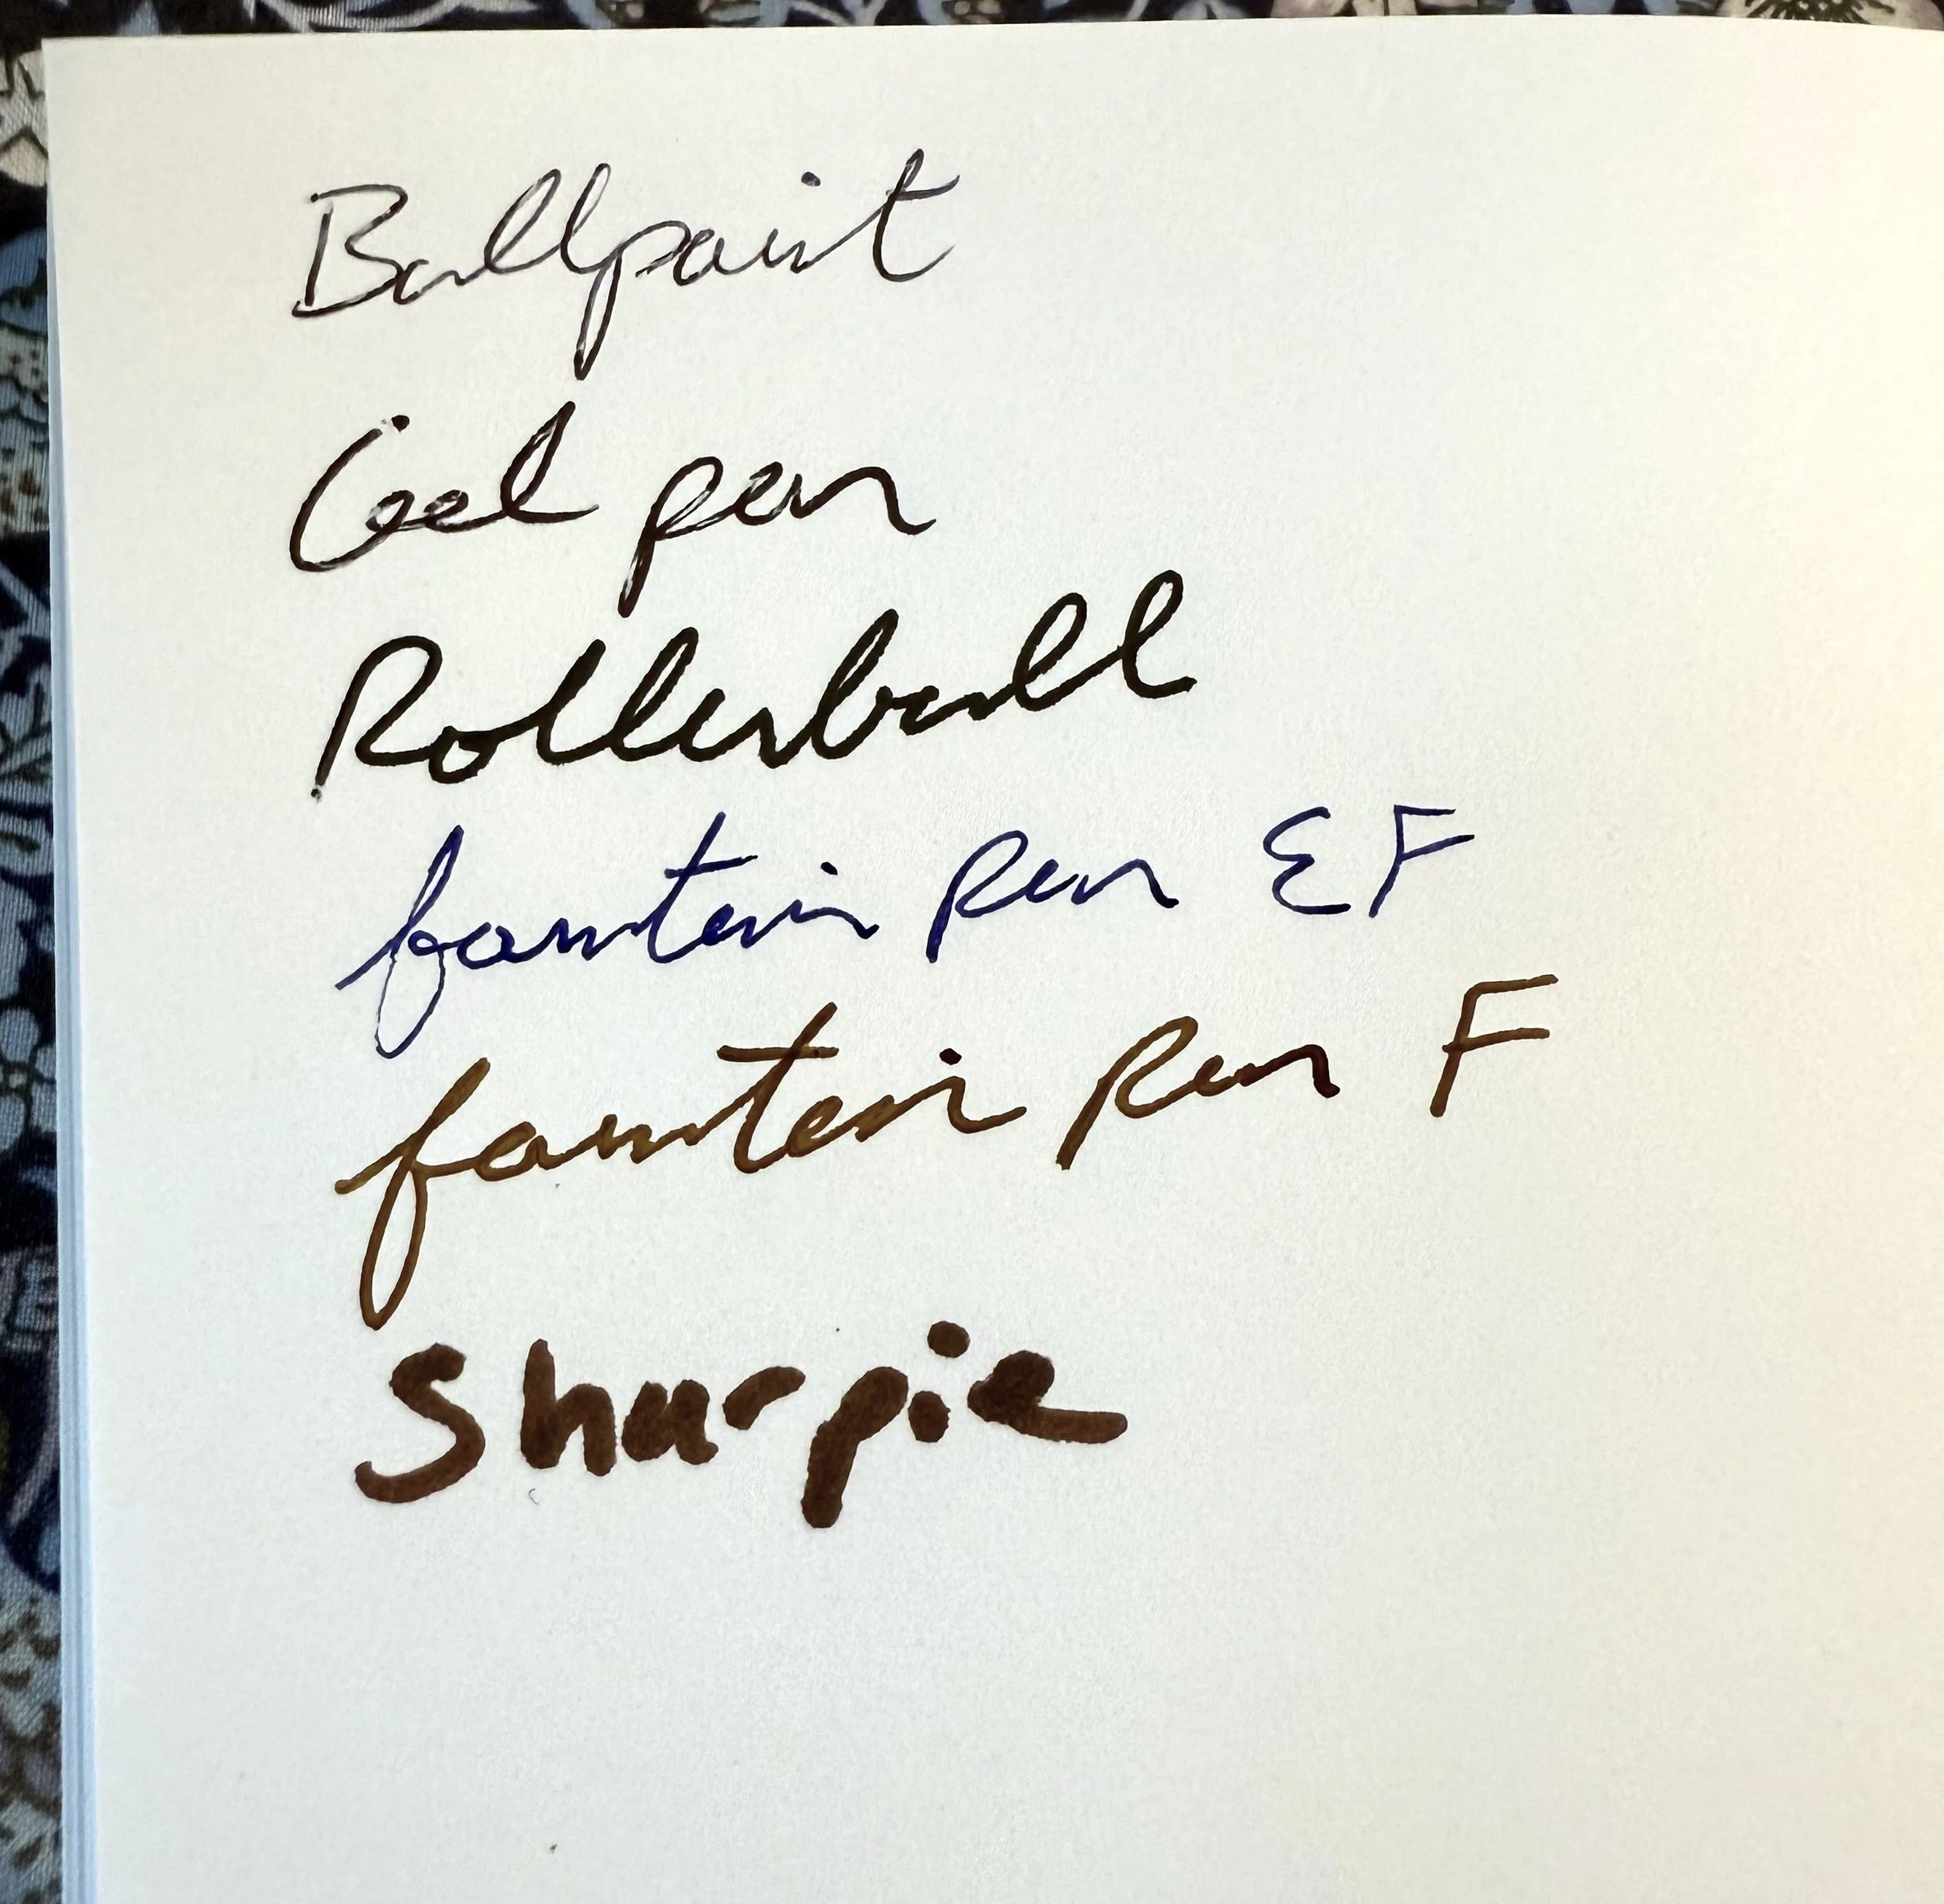 Ballpoint
Gel pen
Rollerball
fountain pen EF
fountain pen F
Sharpie